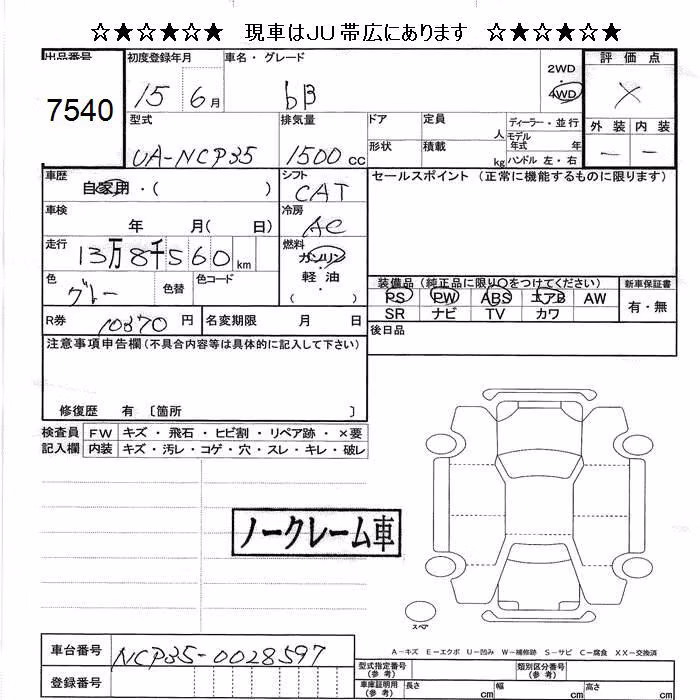 ☆★☆★☆★ 現車はJU帯広にあります ☆★☆★☆★
出品番号 初度登録年月 車名・グレード 評価点
7540 15 6月 bB 2WD 4WD X
型式 排気量 ドア 定員 人 ディーラー・並行 外装 内装
UA-NCP35 1500cc 形状 積載 kg モデル年式 年 ハンドル 左・右 — —
車歴 自家用・( ) シフト CAT セールスポイント (正常に機能するものに限ります)
車検 年 月( 日) 冷房 AC
走行 13万8千560km 燃料 ガソリン
色 グレー 色替 色コード 軽油
( )
装備品(純正品に限り○をつけてください) 新車保証書
PS PW ABS エアB AW 有・無
SR ナビ TV カワ
R券 10370円 名変期限 月 日 後日品
注意事項申告欄(不具合内容等は具体的に記入して下さい)
修復歴 有 〔箇所 〕
検査員 FW キズ・飛石・ヒビ割・リペア跡・×要
記入欄 内装 キズ・汚レ・コゲ・穴・スレ・キレ・破レ
ノークレーム車
スペア
A-キズ E-エクボ U-凹み W-補修跡 S-サビ C-腐食 XX-交換済
車台番号 NCP35-0028597
登録番号
型式指定番号(参考) 類別区分番号(参考)
車庫証明用(参考) 長さ cm 幅 cm 高さ cm